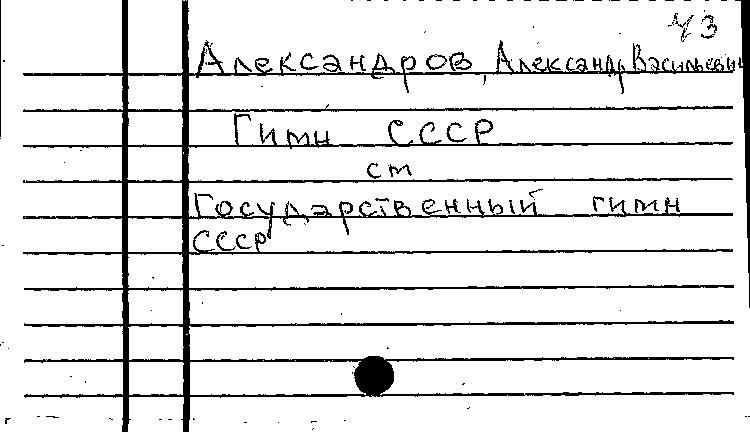 ЧЗ
Александров, Александр Васильевич
Гимн СССР
см
Государственный гимн
СССР